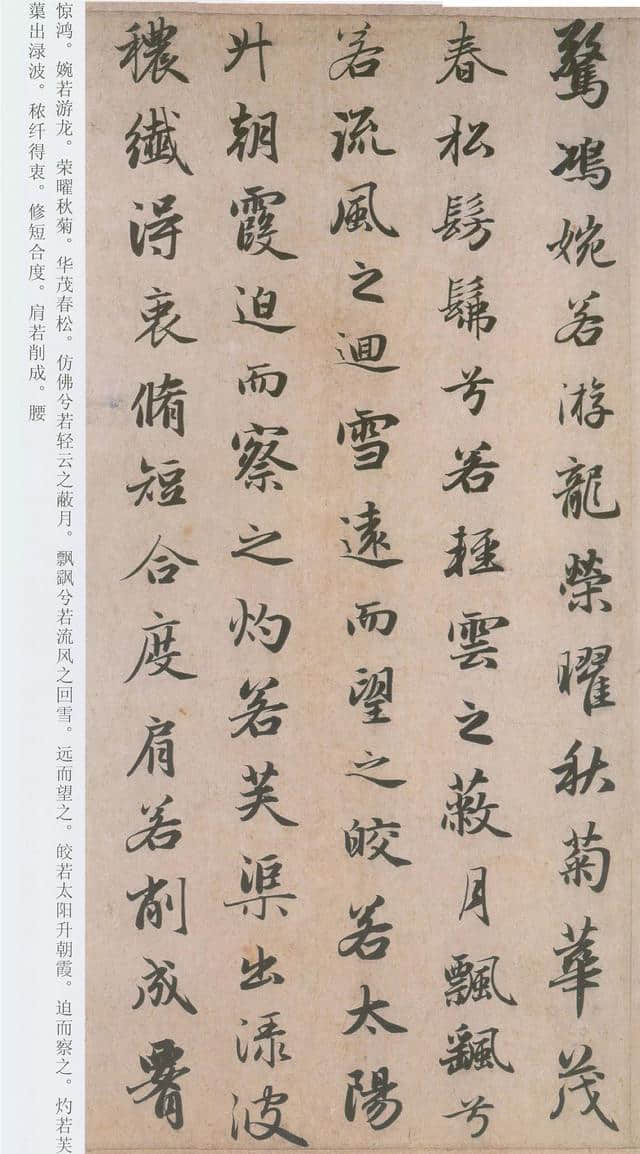 驚鴻婉若游龍榮曜秋菊華茂
春松髣髴兮若輕雲之蔽月飄颻兮
若流風之迴雪遠而望之皎若太陽
升朝霞迫而察之灼若芙渠出淥波
穠纖得衷脩短合度肩若削成腰
惊鸿。婉若游龙。荣曜秋菊。华茂春松。仿佛兮若轻云之蔽月。飘飖兮若流风之回雪。远而望之。皎若太阳升朝霞。迫而察之。灼若芙
蕖出渌波。秾纤得衷。修短合度。肩若削成。腰